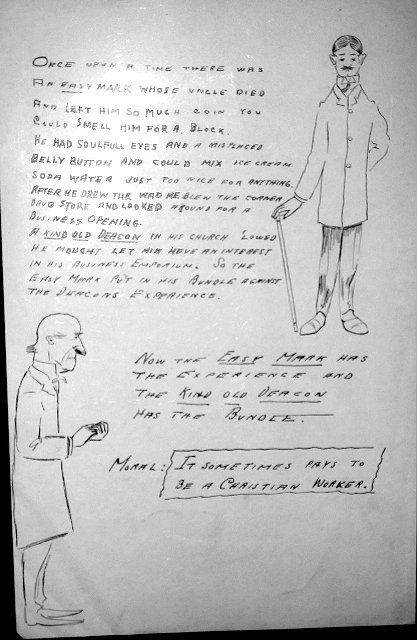 ONCE UPON A TIME THERE WAS
AN EASY MARK WHOSE UNCLE DIED
AND LEFT HIM SO MUCH COIN YOU
COULD SMELL HIM FOR A BLOCK.
HE HAD SOULFULL EYES AND A MISPLACED
BELLY BUTTON AND COULD MIX ICE CREAM
SODA WATER JUST TOO NICE FOR ANYTHING.
AFTER HE DREW THE WAD HE BLEW THE CORNER
DRUG STORE AND LOOKED AROUND FOR A
BUSINESS OPENING.
A KIND OLD DEACON IN HIS CHURCH 'LOWED
HE MOUGHT LET HIM HAVE AN INTEREST
IN HIS BUSINESS EMPORIUM. SO THE
EASY MARK PUT IN HIS BUNDLE AGAINST
THE DEACONS EXPERIENCE.
NOW THE EASY MARK HAS
THE EXPERIENCE AND
THE KIND OLD DEACON
HAS THE BUNDLE.
MORAL: IT SOMETIMES PAYS TO
BE A CHRISTIAN WORKER.